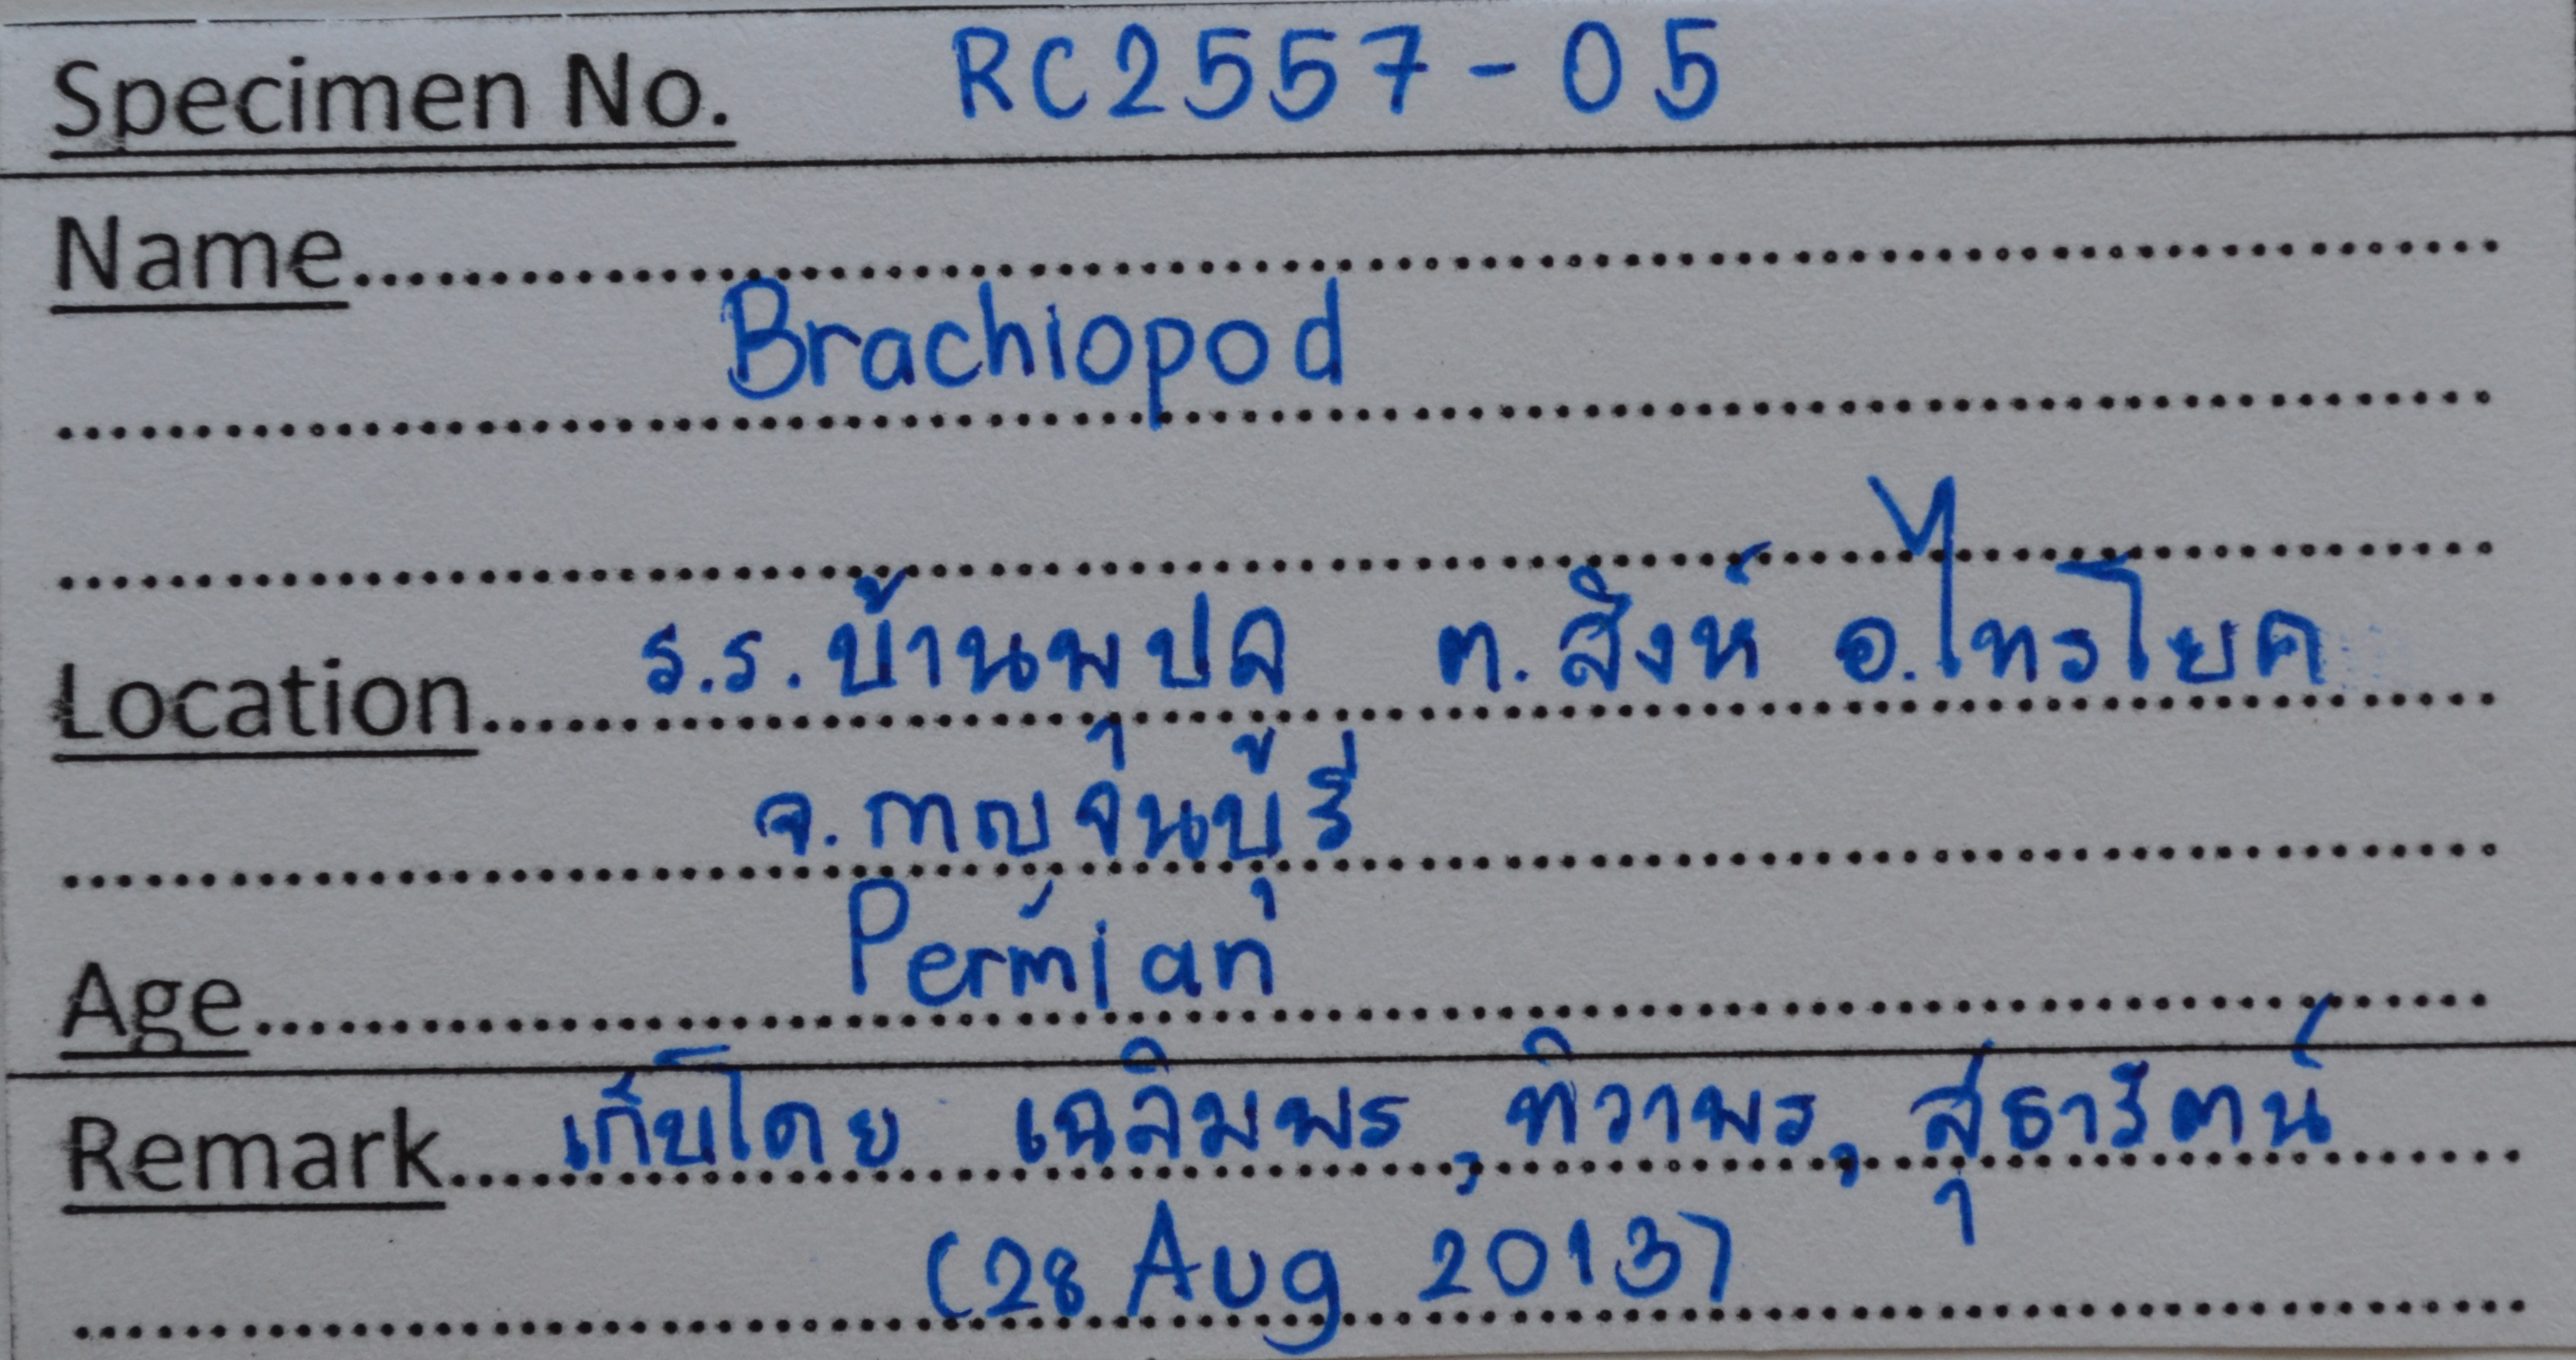 Specimen No. RC2557-05
Name
Brachiopod
Location ร.ร.บ้านพุปลู ต.สิงห์ อ.ไทรโยค
จ.กาญจนบุรี
Age Permian
Remark เก็บโดย เฉลิมพร, ทิวาพร, สุธารัตน์
(28 Aug 2013)